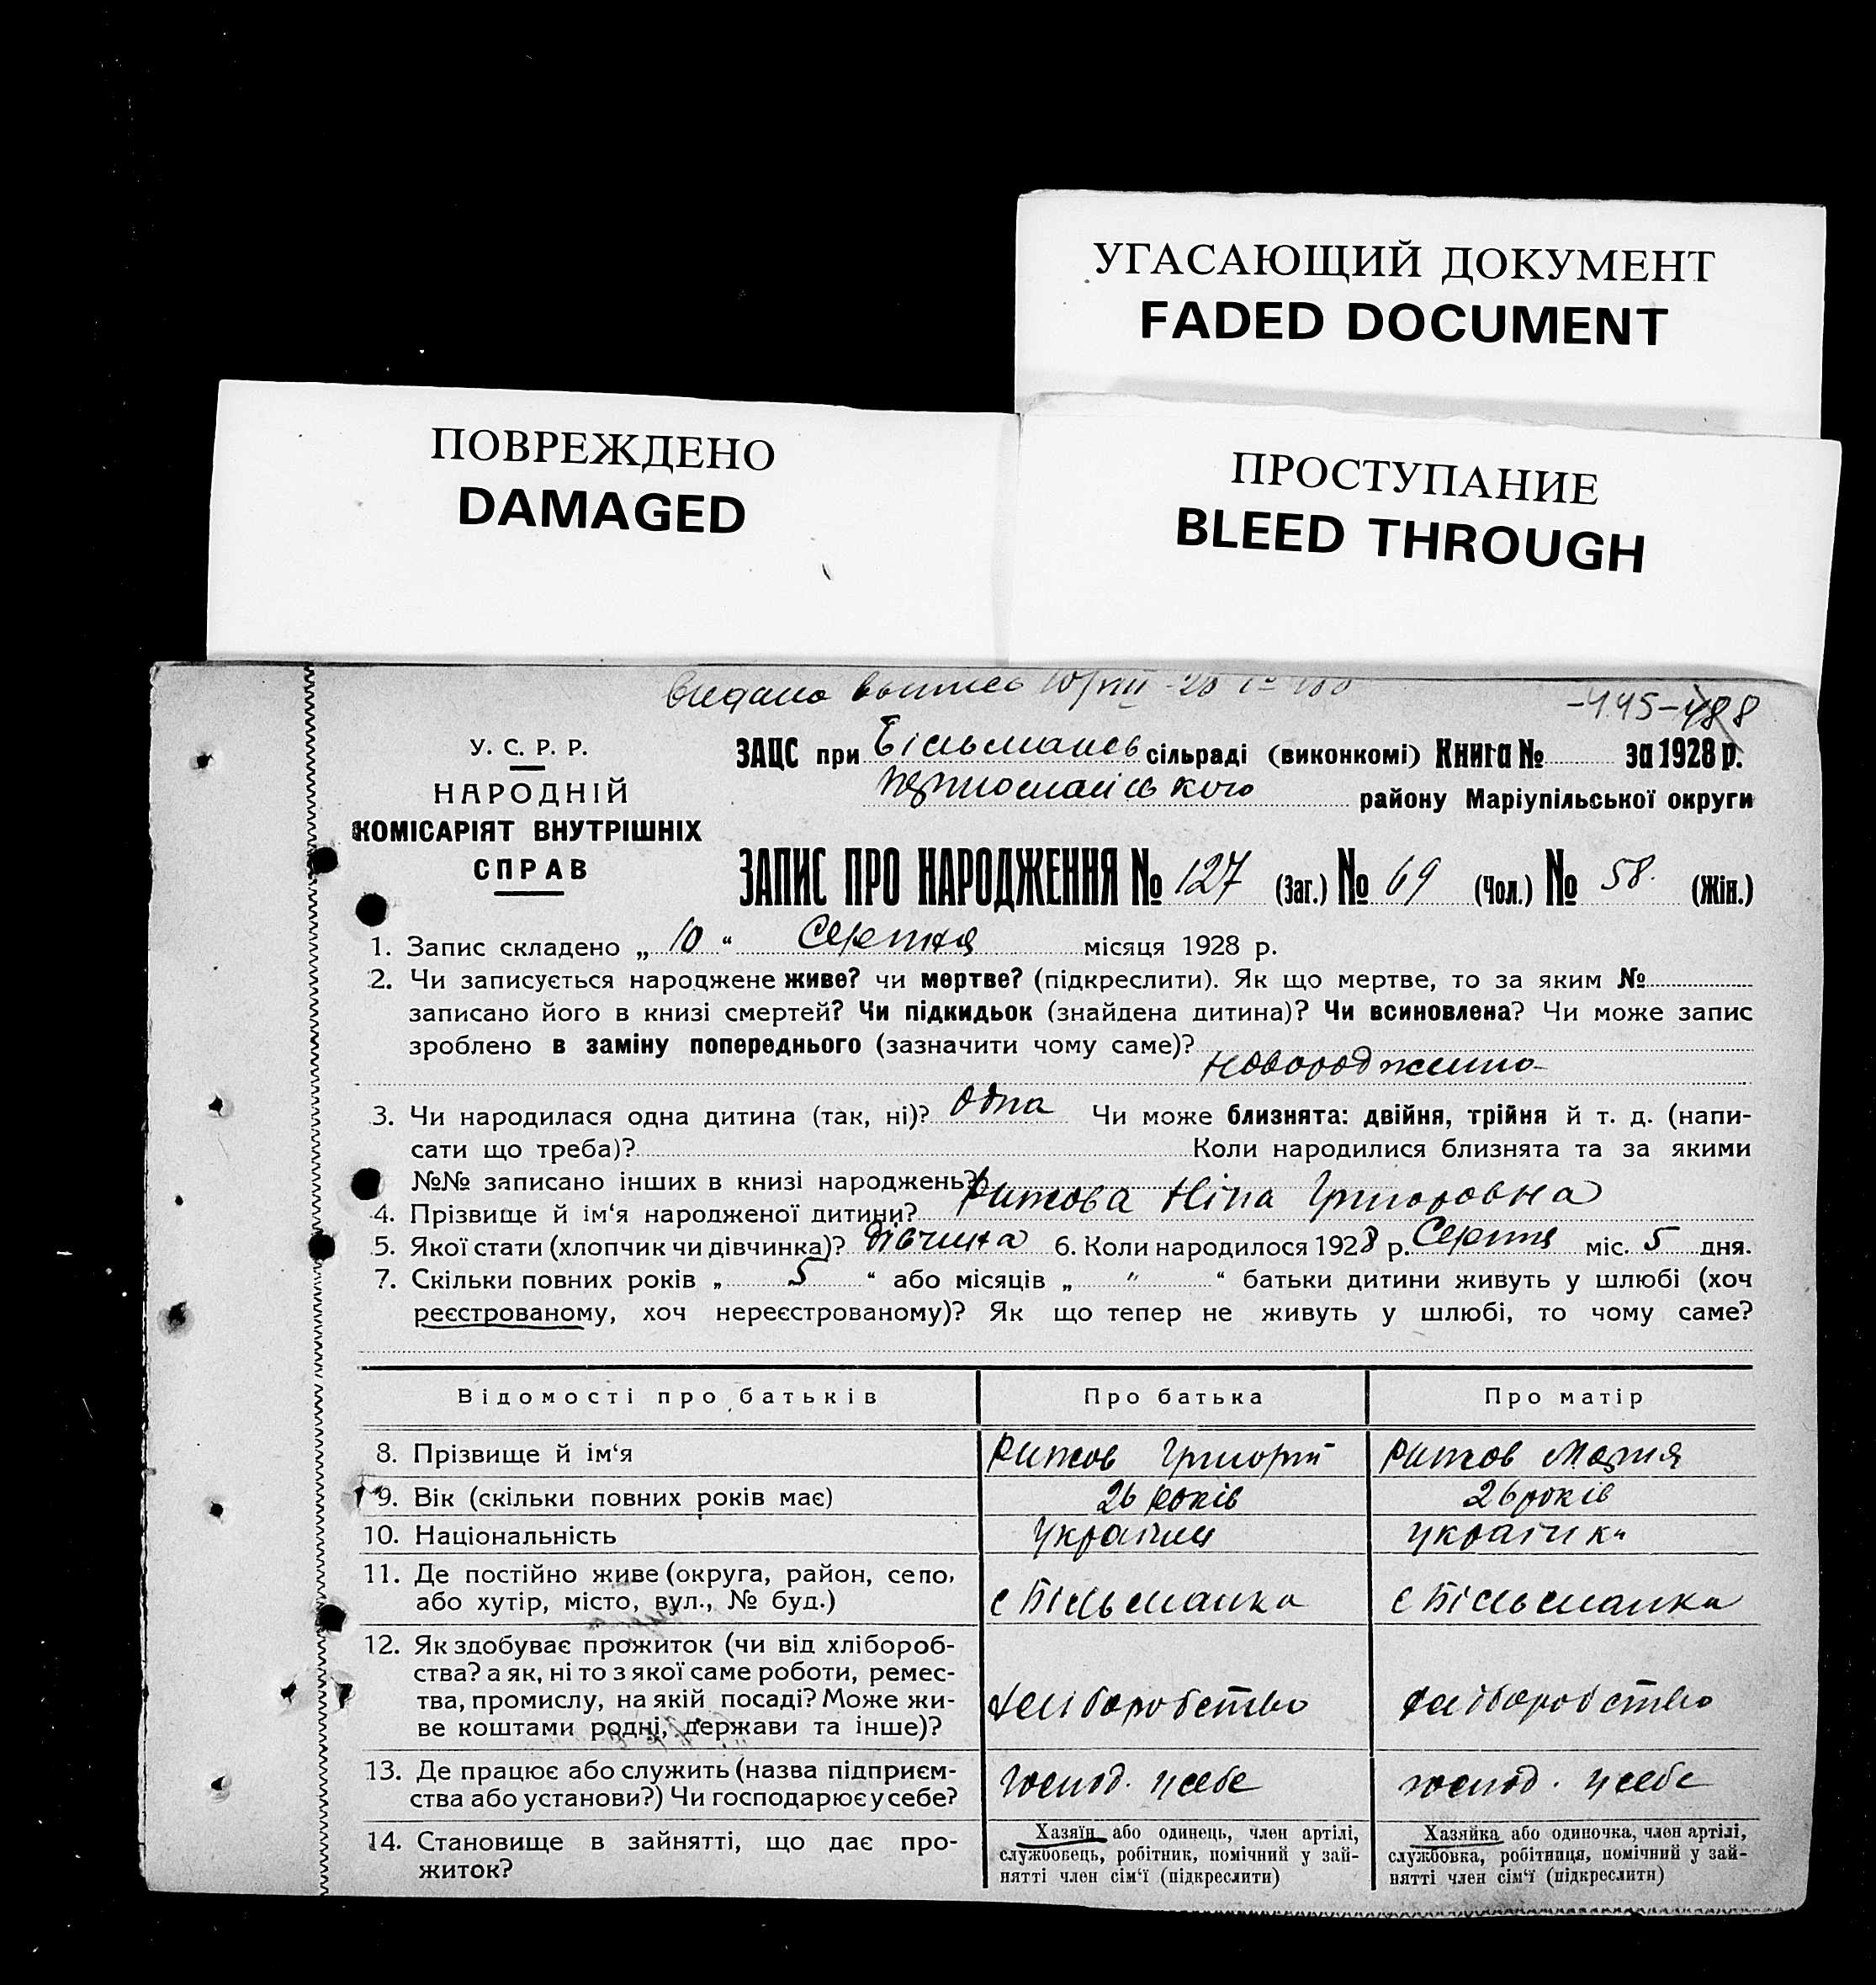 УГАСАЮЩИЙ ДОКУМЕНТ
FADED DOCUMENT
ПОВРЕЖДЕНО
DAMAGED
ПРОСТУПАНИЕ
BLEED THROUGH
видано выпись 10/VIII-28
-445-488
У. С. Р. Р.
НАРОДНІЙ
КОМІСАРІЯТ ВНУТРІШНІХ
СПРАВ
ЗАЦС при Більмансь сільраді (виконкомі) Книга № за 1928 р.
первомайського району Маріупільської округи
ЗАПИС ПРО НАРОДЖЕННЯ № 127 (Заг.) № 69 (Чол.) № 58. (Жін.)
1. Запис складено „ 10 “ Серпня місяця 1928 р.
2. Чи записується народжене живе? чи мертве? (підкреслити). Як що мертве, то за яким №
записано його в книзі смертей? Чи підкидьок (знайдена дитина)? Чи всиновлена? Чи може запис
зроблено в заміну попереднього (зазначити чому саме)?
новорожжено
3. Чи народилася одна дитина (так, ні)? Одна Чи може близнята: двійня, трійня й т. д. (напи-
сати що треба)? Коли народилися близнята та за якими
№№ записано інших в книзі народжень?
4. Прізвище й ім‘я народженої дитини? Ритова Ніна Григоровна
5. Якої стати (хлопчик чи дівчинка)? Дівчина 6. Коли народилося 1928 р. Серпня міс. 5 дня.
7. Скільки повних років „ 5 “ або місяців „ " “ батьки дитини живуть у шлюбі (хоч
реєстрованому, хоч нереєстрованому)? Як що тепер не живуть у шлюбі, то чому саме?
Відомості про батьків Про батька Про матір
8. Прізвище й ім‘я Ритов Григорій Ритов Мария
9. Вік (скільки повних років має) 26 років 26 років
10. Національність Українец українка
11. Де постійно живе (округа, район, село,
або хутір, місто, вул., № буд.) с Більманка с Більманка
12. Як здобуває прожиток (чи від хлібороб-
ства? а як, ні то з якої саме роботи, ремес-
тва, промислу, на якій посаді? Може жи-
ве коштами родні, держави та інше)? хліборобство хліборобство
13. Де працює або служить (назва підприєм-
ства або установи?) Чи господарює у себе? господ. у себе господ. у себе
14. Становище в зайнятті, що дає про-
житок?
Хазяїн або одинець, член артілі,
службовець, робітник, помічний у зай-
нятті член сім‘ї (підкреслити)
Хазяйка або одиночка, член артілі,
службовка, робітниця, помічний у зай-
нятті член сім‘ї (підкреслити)